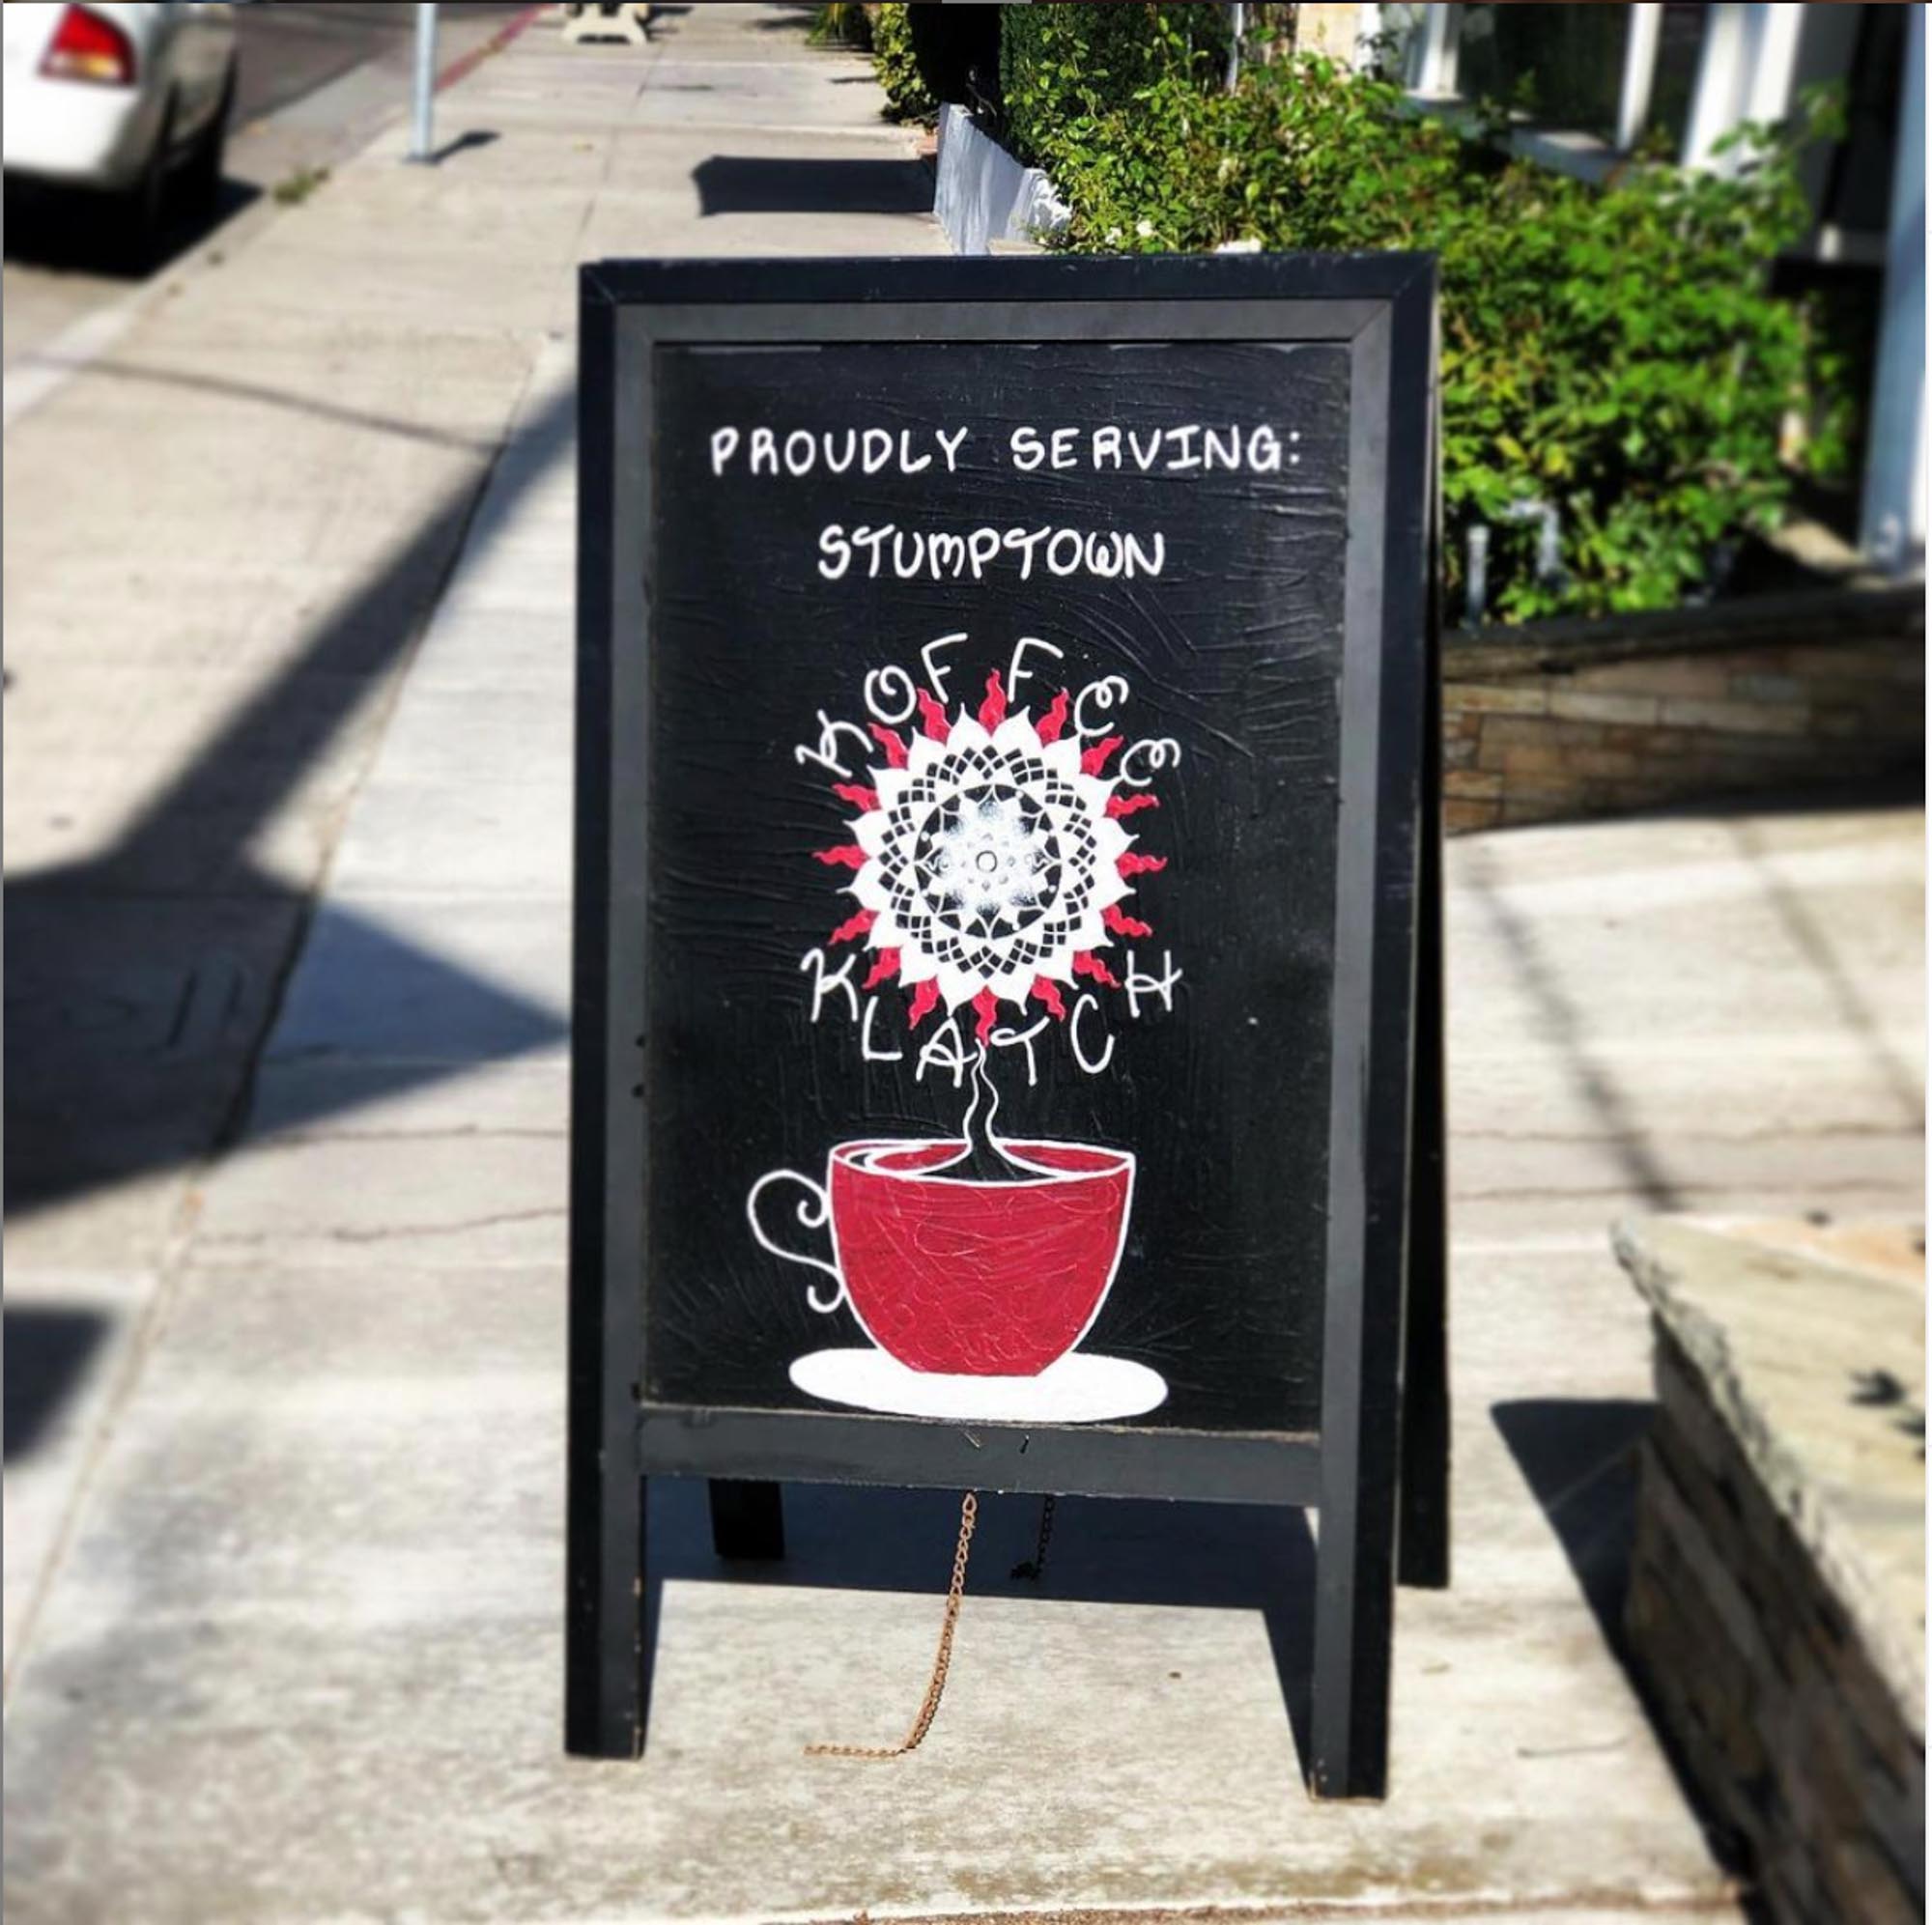 PROUDLY SERVING:
STUMPTOWN
KOFFEE
KLATCH